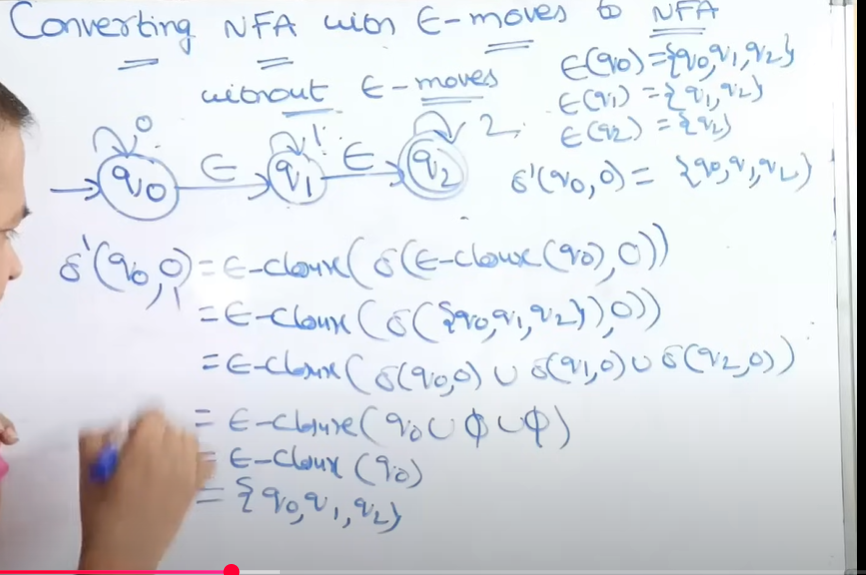 Converting NFA with ε-moves to NFA
without ε-moves
ε(q0) = {q0, q1, q2}
ε(q1) = {q1, q2}
ε(q2) = {q2}
δ'(q0, 0) = {q0, q1, q2}
0 1 2
q0 ε q1 ε q2
δ'(q0, 0) = ε-closure(δ(ε-closure(q0), 0))
= ε-closure(δ({q0, q1, q2}), 0))
= ε-closure(δ(q0, 0) ∪ δ(q1, 0) ∪ δ(q2, 0))
= ε-closure(q0 ∪ ϕ ∪ ϕ)
= ε-closure(q0)
= {q0, q1, q2}